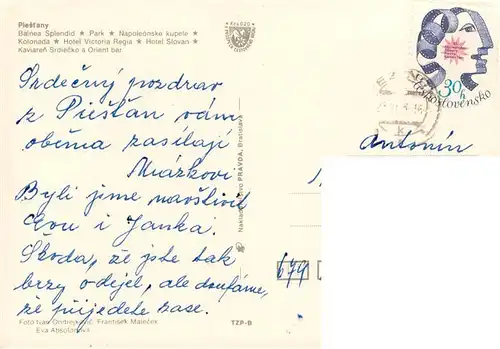 Piešťany
Balnea Splendid ★ Park ★ Napoleónske kúpele ★
Kolonáda ★ Hotel Victoria Regia ★ Hotel Slovan ★
Kaviareň Srdiečko a Orient bar
Kčs 0,20
30h
Československo
Antonín
Srdečný pozdrav
z Piešťan vám
oběma zasílají
Mrázkovi
Byli jsme navštívit
Evu i Janka.
Škoda, že jste tak
brzy odjel, ale doufáme,
že přijedete zase.
679
Nakladateľstvo PRAVDA, Bratislava
Foto Ivan Ondrejkovič, František Maleček,
Eva Absolonová
TZP-B